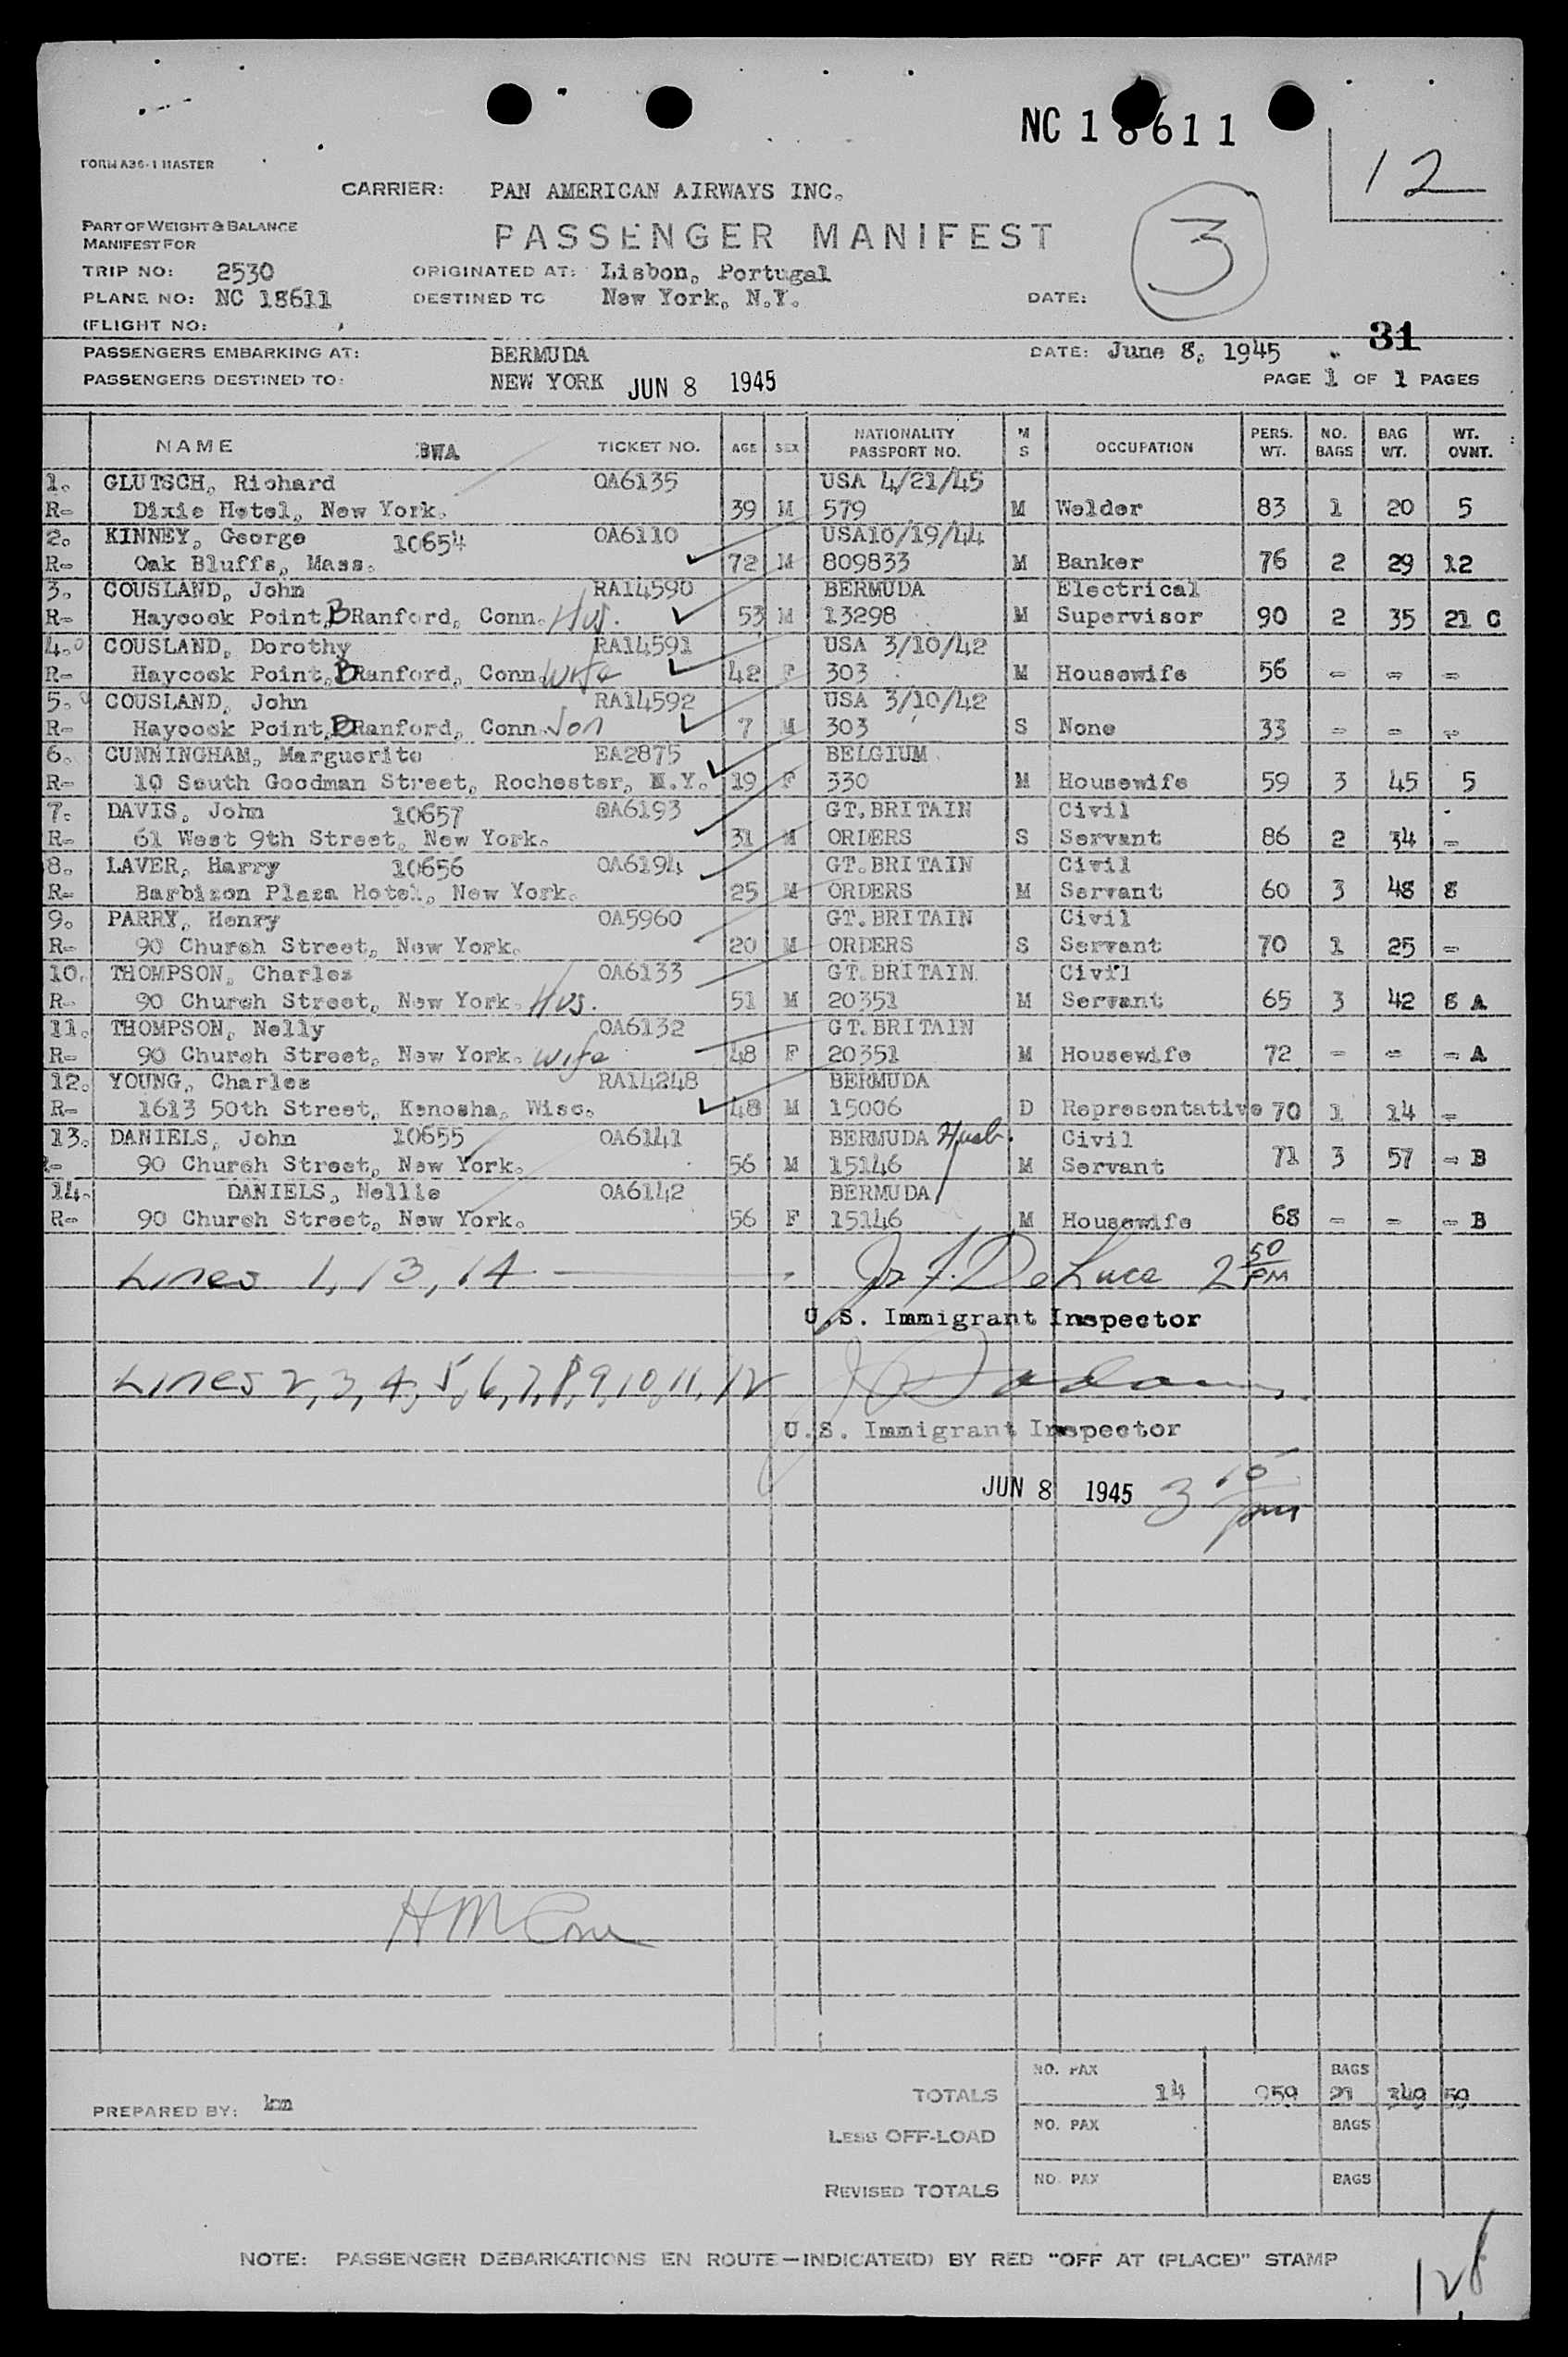 NC 18611
12
FORM A36-1 MASTER
CARRIER: PAN AMERICAN AIRWAYS INC.
PART OF WEIGHT & BALANCE
MANIFEST FOR
PASSENGER MANIFEST
3
TRIP NO: 2530 ORIGINATED AT: Lisbon, Portugal
PLANE NO: NC 18611 DESTINED TO New York, N.Y. DATE:
(FLIGHT NO:
31
PASSENGERS EMBARKING AT: BERMUDA DATE: June 8, 1945
PASSENGERS DESTINED TO: NEW YORK JUN 8 1945 PAGE 1 OF 1 PAGES
NAME BWA TICKET NO. AGE SEX NATIONALITY PASSPORT NO. M S OCCUPATION PERS. WT. NO. BAGS BAG WT. WT. OVNT.
1. GLUTSCH, Richard OA6135 USA 4/21/45
R- Dixie Hotel, New York. 39 M 579 M Welder 83 1 20 5
2. KINNEY, George 10654 OA6110 USA10/19/44
R- Oak Bluffs, Mass. 72 M 809833 M Banker 76 2 29 12
3. COUSLAND, John RA14590 BERMUDA Electrical
R- Haycock Point, BRanford, Conn. Hus. 53 M 13298 M Supervisor 90 2 35 21 C
4. COUSLAND, Dorothy RA14591 USA 3/10/42
R- Haycock Point, BRanford, Conn. Wife 42 F 303 M Housewife 56 - - -
5. COUSLAND, John RA14592 USA 3/10/42
R- Haycock Point, BRanford, Conn. Son 7 M 303 S None 33 - - -
6. CUNNINGHAM, Marguerite EA2875 BELGIUM
R- 10 South Goodman Street, Rochester, N.Y. 19 F 330 M Housewife 59 3 45 5
7. DAVIS, John 10657 OA6193 GT.BRITAIN Civil
R- 61 West 9th Street, New York. 31 M ORDERS S Servant 86 2 34 -
8. LAVER, Harry 10656 OA6194 GT.BRITAIN Civil
R- Barbizon Plaza Hotel, New York. 25 M ORDERS M Servant 60 3 48 8
9. PARRY, Henry OA5960 GT.BRITAIN Civil
R- 90 Church Street, New York. 20 M ORDERS S Servant 70 1 25 -
10. THOMPSON, Charles OA6133 GT.BRITAIN Civil
R- 90 Church Street, New York. Hus. 51 M 20351 M Servant 65 3 42 8 A
11. THOMPSON, Nelly OA6132 GT.BRITAIN
R- 90 Church Street, New York. Wife 48 F 20351 M Housewife 72 - - - A
12. YOUNG, Charles RA14248 BERMUDA
R- 1613 50th Street, Kenosha, Wisc. 48 M 15006 D Representative 70 1 14 -
13. DANIELS, John 10655 OA6141 BERMUDA Husb. Civil
R- 90 Church Street, New York. 56 M 15146 M Servant 71 3 57 - B
14. DANIELS, Nellie OA6142 BERMUDA
R- 90 Church Street, New York. 56 F 15146 M Housewife 68 - - - B
Lines 1, 13, 14 Jr. F. DeLuca 2 50 PM
U.S. Immigrant Inspector
Lines 2, 3, 4, 5, 6, 7, 8, 9, 10, 11, 12
U.S. Immigrant Inspector
JUN 8 1945 3 15 pm
TOTALS NO. PAX 14 959 BAGS 21 349 59
PREPARED BY: km
LESS OFF-LOAD NO. PAX BAGS
REVISED TOTALS NO. PAX BAGS
NOTE: PASSENGER DEBARKATIONS EN ROUTE—INDICATE(D) BY RED "OFF AT (PLACE)" STAMP